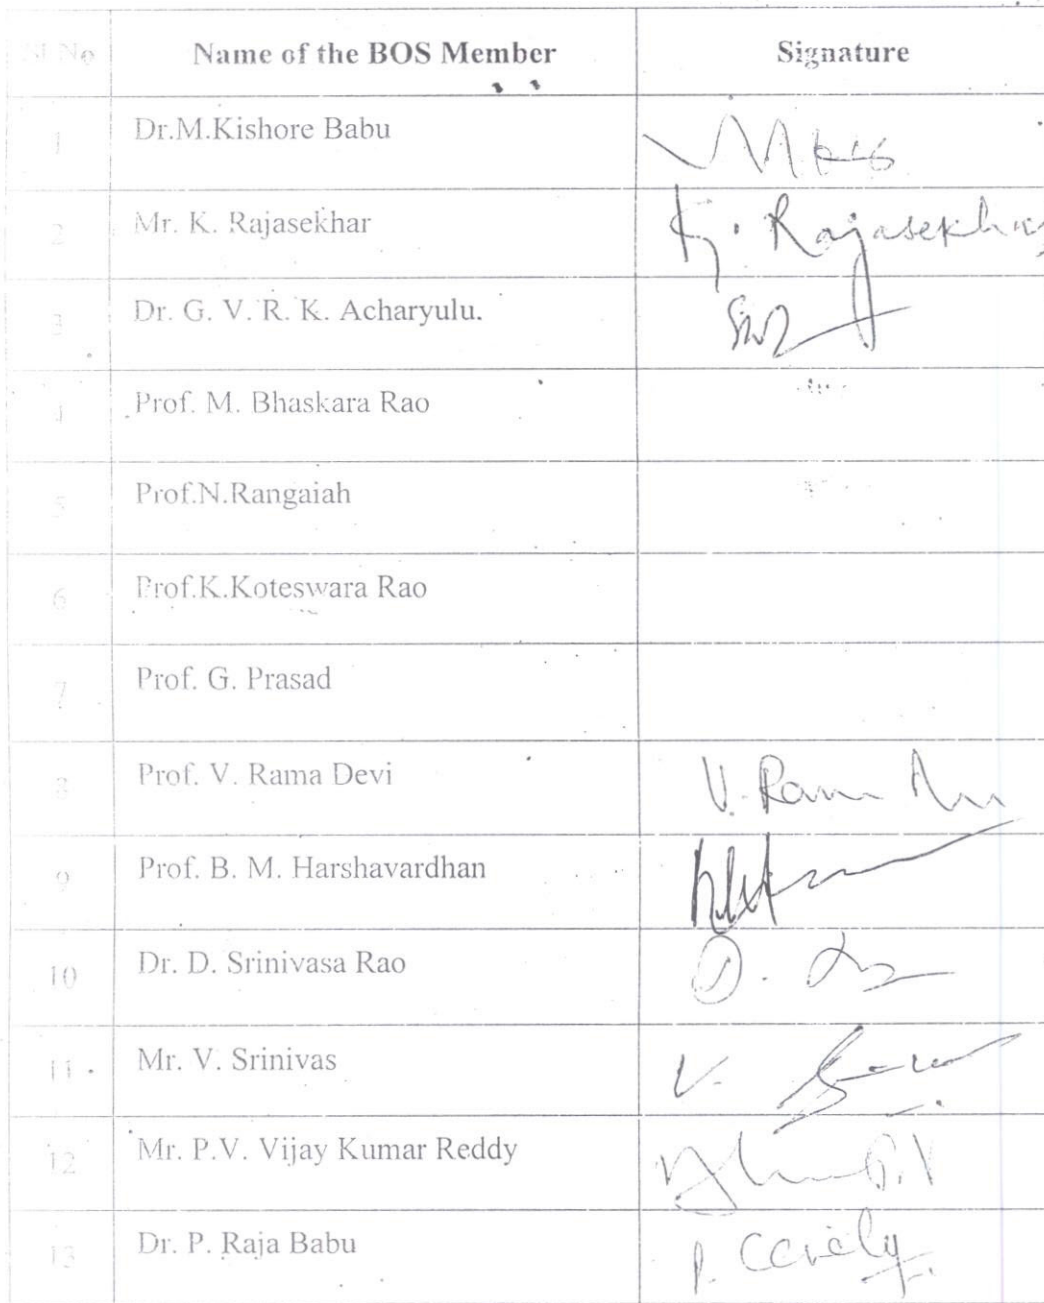 Sl No Name of the BOS Member Signature
1 Dr.M.Kishore Babu
2 Mr. K. Rajasekhar K. Rajasekhar
3 Dr. G. V. R. K. Acharyulu.
4 Prof. M. Bhaskara Rao
5 Prof.N.Rangaiah
6 Prof.K.Koteswara Rao
7 Prof. G. Prasad
8 Prof. V. Rama Devi V. Rama
9 Prof. B. M. Harshavardhan
10 Dr. D. Srinivasa Rao D.
11 Mr. V. Srinivas V.
12 Mr. P.V. Vijay Kumar Reddy
13 Dr. P. Raja Babu P.